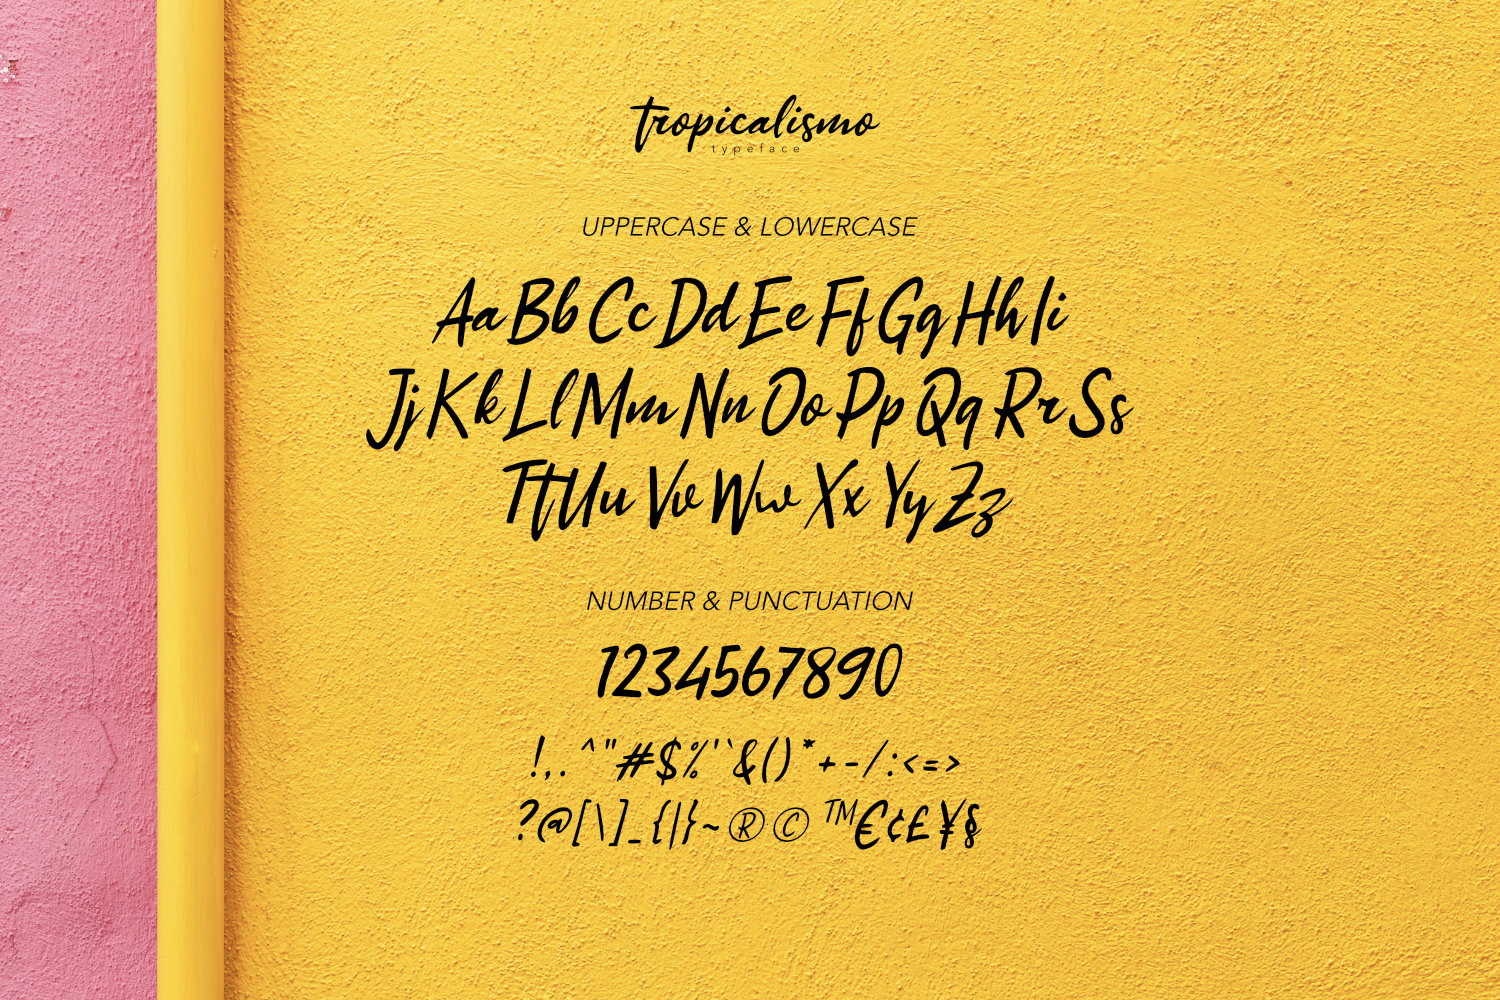 tropicalismo
typeface
UPPERCASE & LOWERCASE
Aa Bb Cc Dd Ee Ff Gg Hh Ii
Jj Kk Ll Mm Nn Oo Pp Qq Rr Ss
Tt Uu Vv Ww Xx Yy Zz
NUMBER & PUNCTUATION
1234567890
!,.^"#$%'`&()*+-/:<=>
?@[\]_{|}~®©™€¢£¥§